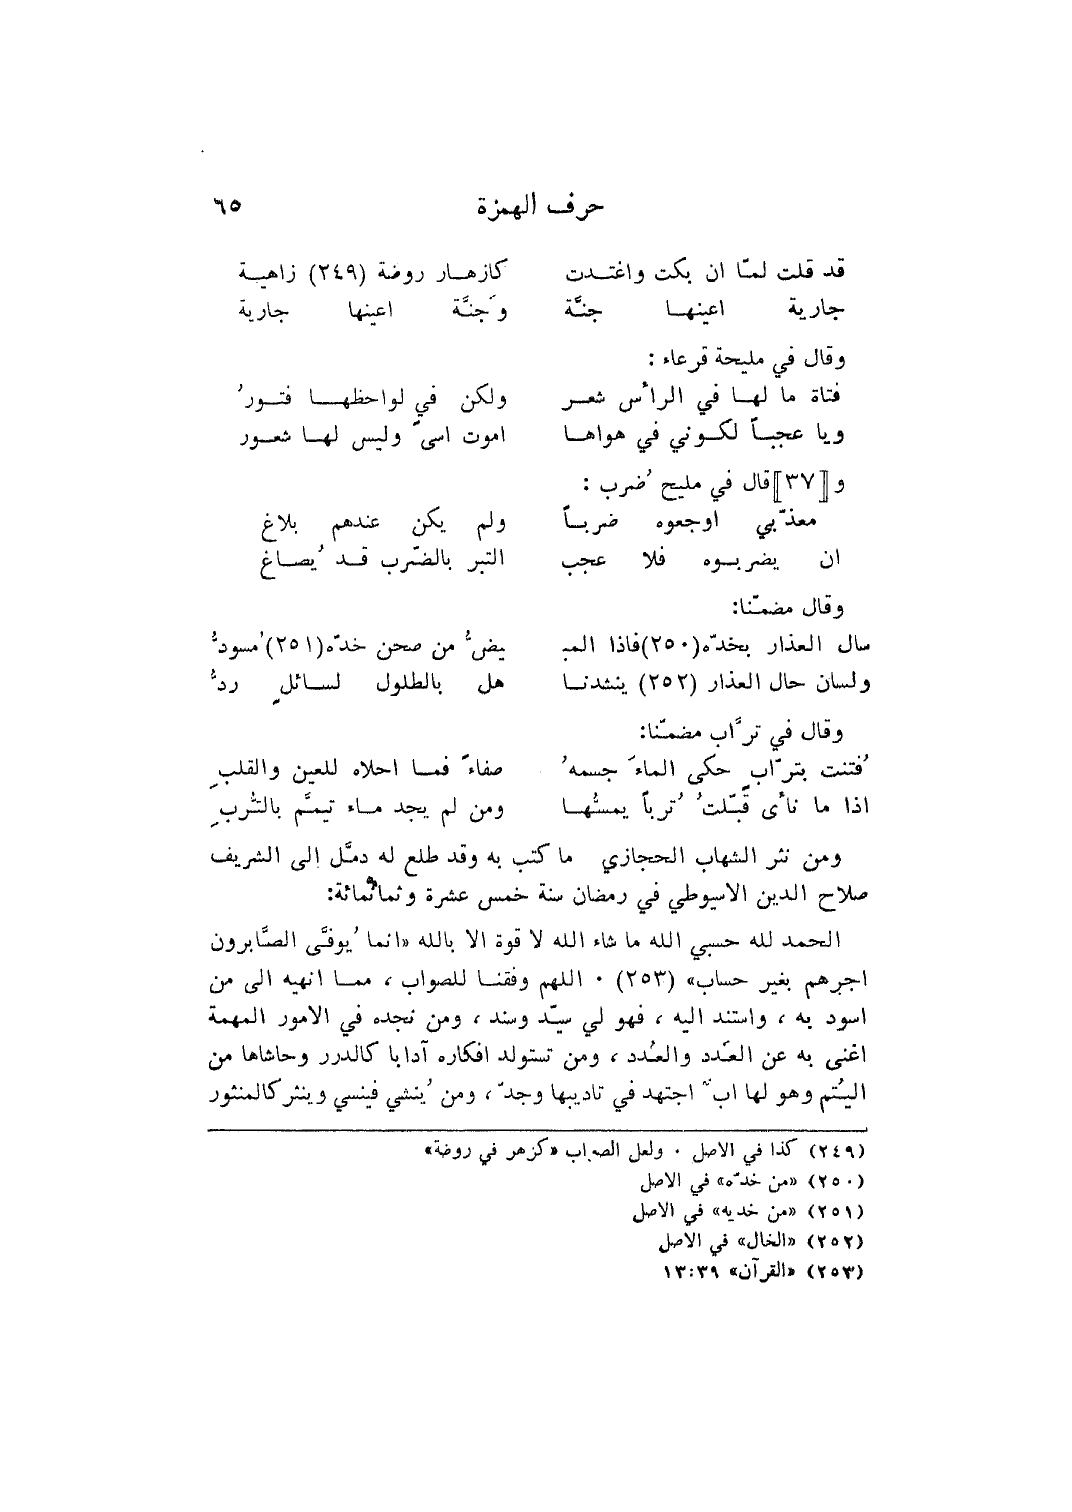 حرف الهمزة ٦٥
قد قلت لمّا ان بكت واغتدت كازهار روضة (٢٤٩) زاهية
جارية اعينها جنَّة وَجنَّة اعينها جارية
وقال في مليحة قرعاء :
فتاة ما لها في الرأس شعر ولكن في لواحظها فتورُ
ويا عجباً لكوني في هواها اموت اسىً وليس لها شعور
و [[٣٧]]قال في مليح ُضرب :
معذّبي اوجعوه ضرباً ولم يكن عندهم بلاغ
ان يضربوه فلا عجب التبر بالضّرب قد ُيصاغ
وقال مضمّنا:
سال العذار بخدّه(٢٥٠)فاذا المبـ يضُّ من صحن خدّه(٢٥١)ُمسودُّ
ولسان حال العذار (٢٥٢) ينشدنا هل بالطلول لسائلٍ ردُّ
وقال في ترَّاب مضمّنا:
ُفتنت بترّابٍ حكى الماءَ جسمهُ صفاءً فما احلاه للعين والقلبِ
اذا ما نأى قبّلتُ ُترباً يمسُّها ومن لم يجد ماء تيمَّم بالتُّربِ
ومن نثر الشهاب الحجازي ما كتب به وقد طلع له دمَّل الى الشريف
صلاح الدين الاسيوطي في رمضان سنة خمس عشرة وثمانمائة:
الحمد لله حسبي الله ما شاء الله لا قوة الا بالله «انما ُيوفَّى الصَّابرون
اجرهم بغير حساب» (٢٥٣) ٠ اللهم وفقنا للصواب ، مما انهيه الى من
اسود به ، واستند اليه ، فهو لي سيّد وسند ، ومن نجده في الامور المهمة
اغنى به عن العَدد والعُدد ، ومن تستولد افكاره آدابا كالدرر وحاشاها من
اليُتم وهو لها ابٌ اجتهد في تاديبها وجدّ ، ومن ُينشي فينسي وينثر كالمنثور
(٢٤٩) كذا في الاصل ٠ ولعل الصواب «كزهر في روضة»
(٢٥٠) «من خدّه» في الاصل
(٢٥١) «من خديه» في الاصل
(٢٥٢) «الخال» في الاصل
(٢٥٣) «القرآن» ١٣:٣٩